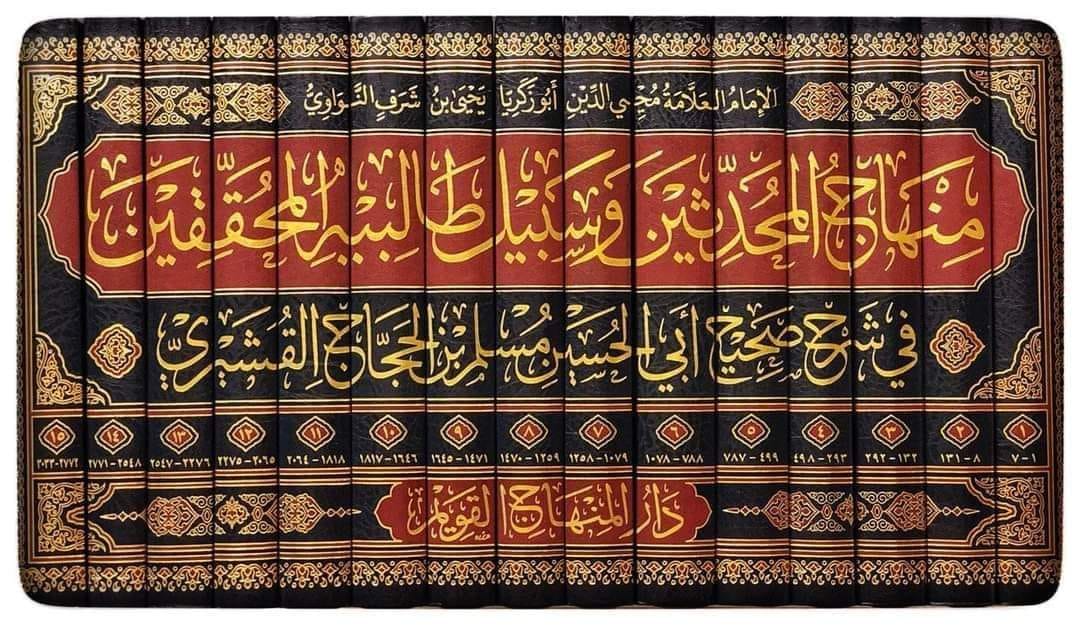 الإمَامُ العَلَّامَة مُحْيِي الدِّيْنِ أَبُو زَكَرِيَّا يَحْيَىٰ بْنُ شَرَفِ النَّوَاوِيُّ
مِنْهَاجُ المُحَدِّثِيْنَ وَسَبِيْلُ طَالِبِيْهِ المُحَقِّقِيْنَ
فِي شَرْحِ صَحِيْحِ أَبِي الحُسَيْنِ مُسْلِمِ بْنِ الحَجَّاجِ القُشَيْرِيِّ
١ ٢ ٣ ٤ ٥ ٦ ٧ ٨ ٩ ١٠ ١١ ١٢ ١٣ ١٤ ١٥
١-٧ ٨-١٣١ ١٣٢-٢٩٢ ٢٩٣-٤٩٨ ٤٩٩-٧٨٧ ٧٨٨-١٠٧٨ ١٠٧٩-١٢٥٨ ١٢٥٩-١٤٧٠ ١٤٧١-١٦٤٥ ١٦٤٦-١٨١٧ ١٨١٨-٢٠٦٤ ٢٠٦٥-٢٢٧٥ ٢٢٧٦-٢٥٤٧ ٢٥٤٨-٢٧٧١ ٢٧٧٢-٣٠٣٣
دَارُ المِنْهَاجِ القَوِيْمِ